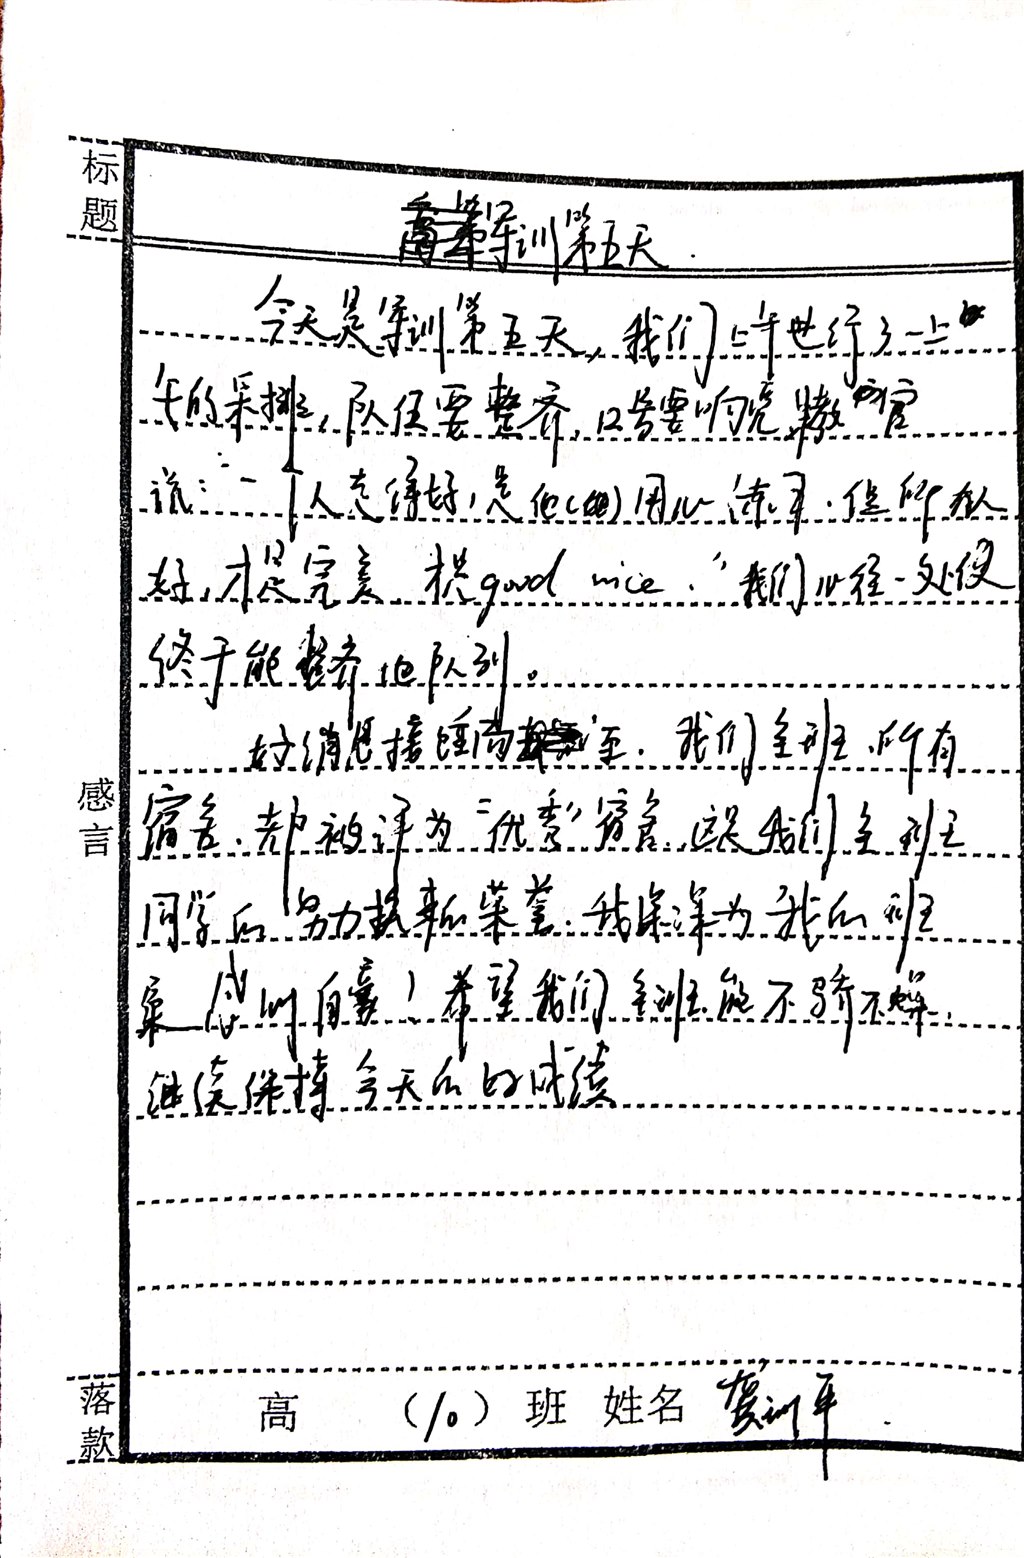 标题
军训第五天
今天是军训第五天，我们上午进行了一上
午的采排，队伍要整齐，口号要响亮 教官
说：“一个人走得好，是他(她)用心 练习．但所有人
好，才是完美 good nice．”我们心往一处使
终于能整齐 队列。
好消息接踵而至．我们全班 所有
宿舍．都被评为“优秀”宿舍．这是我们全班
同学的努力换来的荣誉．我深深为我的班
集 感到自豪！希望我们全班能不骄不燥．
继续保持今天的好成绩
感言
落款
高 （10）班 姓名